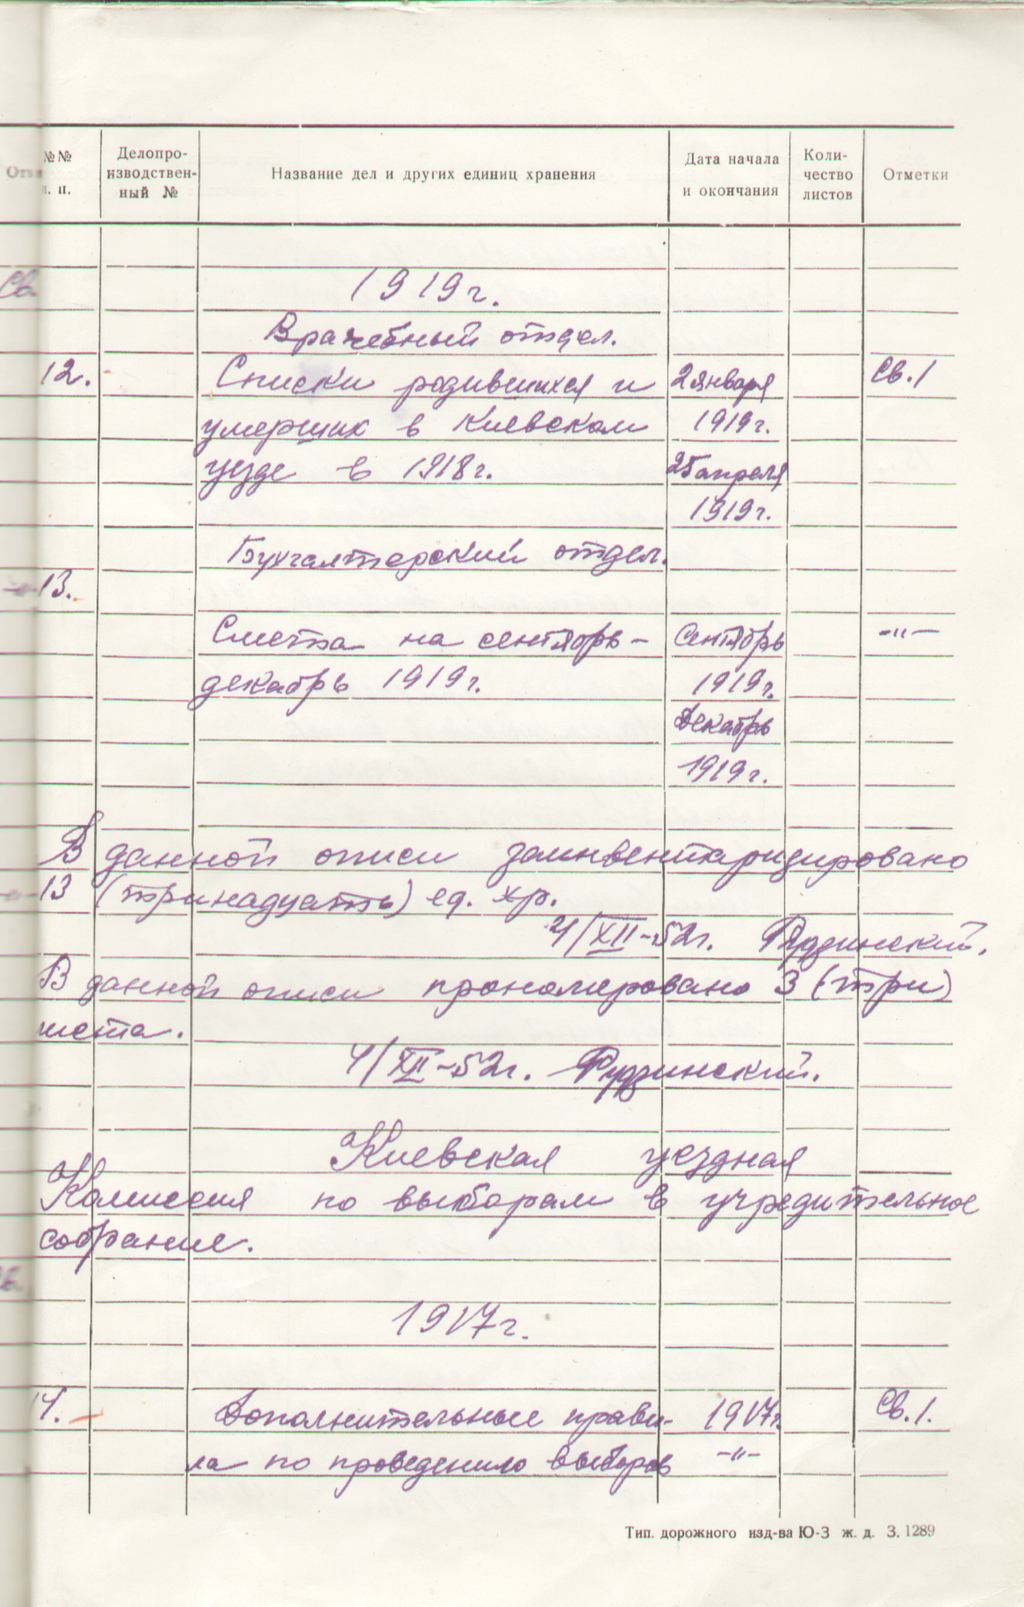 №№ п. п. Делопро- изводствен- ный № Название дел и других единиц хранения Дата начала и окончания Коли- чество листов Отметки
Св.
1919 г.
Врачебный отдел.
12. Списки родившихся и 2 января Св. 1
умерших в Киевском 1919 г.
уезде в 1918 г. 25 апреля
1919 г.
Бухгалтерский отдел.
13.
Смета на сентябрь- Сентябрь -"-
декабрь 1919 г. 1919 г.
Декабрь
1919 г.
В данной описи заинвентаризировано
13 (тринадцать) ед. хр.
4/XII-52 г.
В данной описи прономеровано 3 (три)
листа.
4/XII-52 г.
Киевская уездная
Комиссия по выборам в учредительное
собрание.
1917 г.
Дополнительные прави- 1917 г. Св. 1.
ла по проведению выборов -"-
Тип. дорожного изд-ва Ю-З ж. д. З. 1289